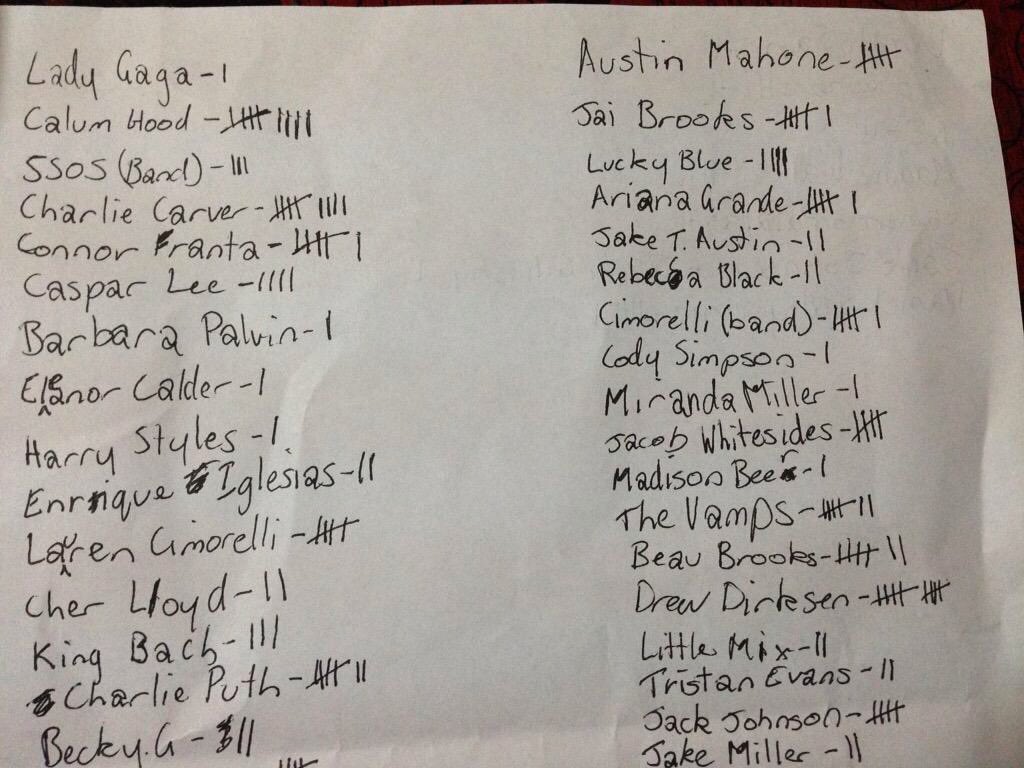 Lady Gaga - I
Calum Hood - IIII IIII
5SOS (Band) - III
Charlie Carver - IIII IIII
Connor Franta - IIII I
Caspar Lee - IIII
Barbara Palvin - I
Eleanor Calder - I
Harry Styles - I
Enrique Iglesias - II
Lauren Cimorelli - IIII
Cher Lloyd - II
King Bach - III
Charlie Puth - IIII II
Becky.G - III
Austin Mahone - IIII
Jai Brooks - IIII I
Lucky Blue - IIII
Ariana Grande - IIII I
Jake T. Austin - II
Rebecca Black - II
Cimorelli (band) - IIII I
Cody Simpson - I
Miranda Miller - I
Jacob Whitesides - IIII
Madison Beer - I
The Vamps - IIII II
Beau Brooks - IIII II
Drew Dirksen - IIII IIII
Little Mix - II
Tristan Evans - II
Jack Johnson - IIII
Jake Miller - II